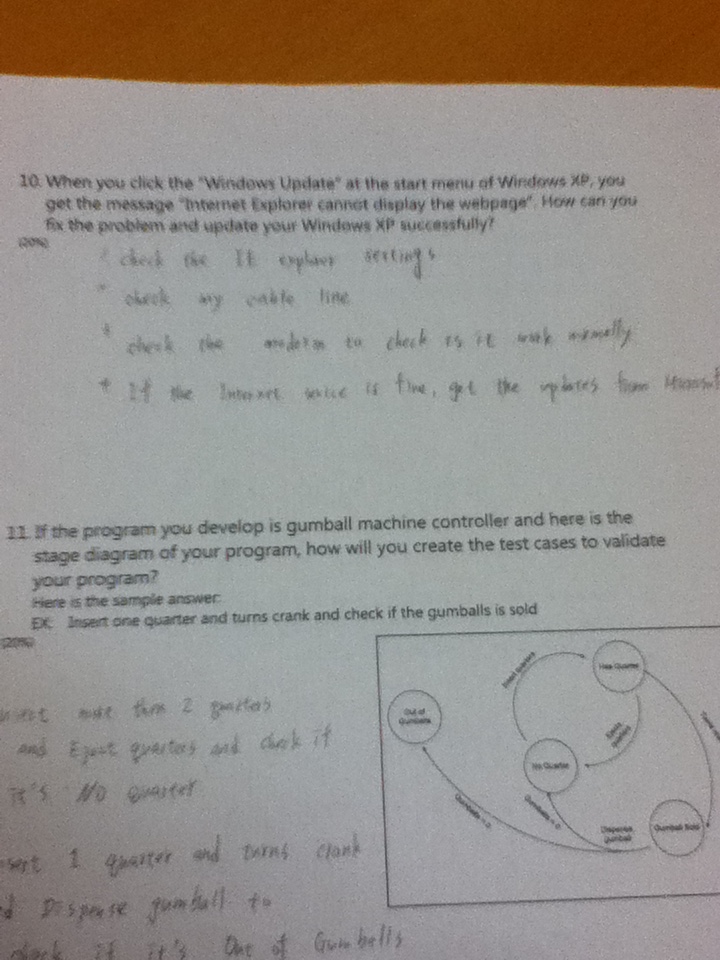 10. When you click the "Windows Update" at the start menu of Windows XP, you
get the message "Internet Explorer cannot display the webpage". How can you
fix the problem and update your Windows XP successfully?
(20%)
* check the IE explaer settings
* check my cable line
* check the modem to check is it work normally
* If the Internet service is fine, get the updates from
11. If the program you develop is gumball machine controller and here is the
stage diagram of your program, how will you create the test cases to validate
your program?
Here is the sample answer:
EX: Insert one quarter and turns crank and check if the gumballs is sold
(20%)
more then 2 quarters
and Eject quarters and check if
it's No quarter
1 quarter and turns crank
Dispense gumball to
check if it's Out of Gumballs
Has Quarter
Insert Quarters
Out of
Gumballs
Ejects
Quarters
No Quarter
Gumballs = 0
Gumballs > 0
Dispense
gumball
Gumball Sold